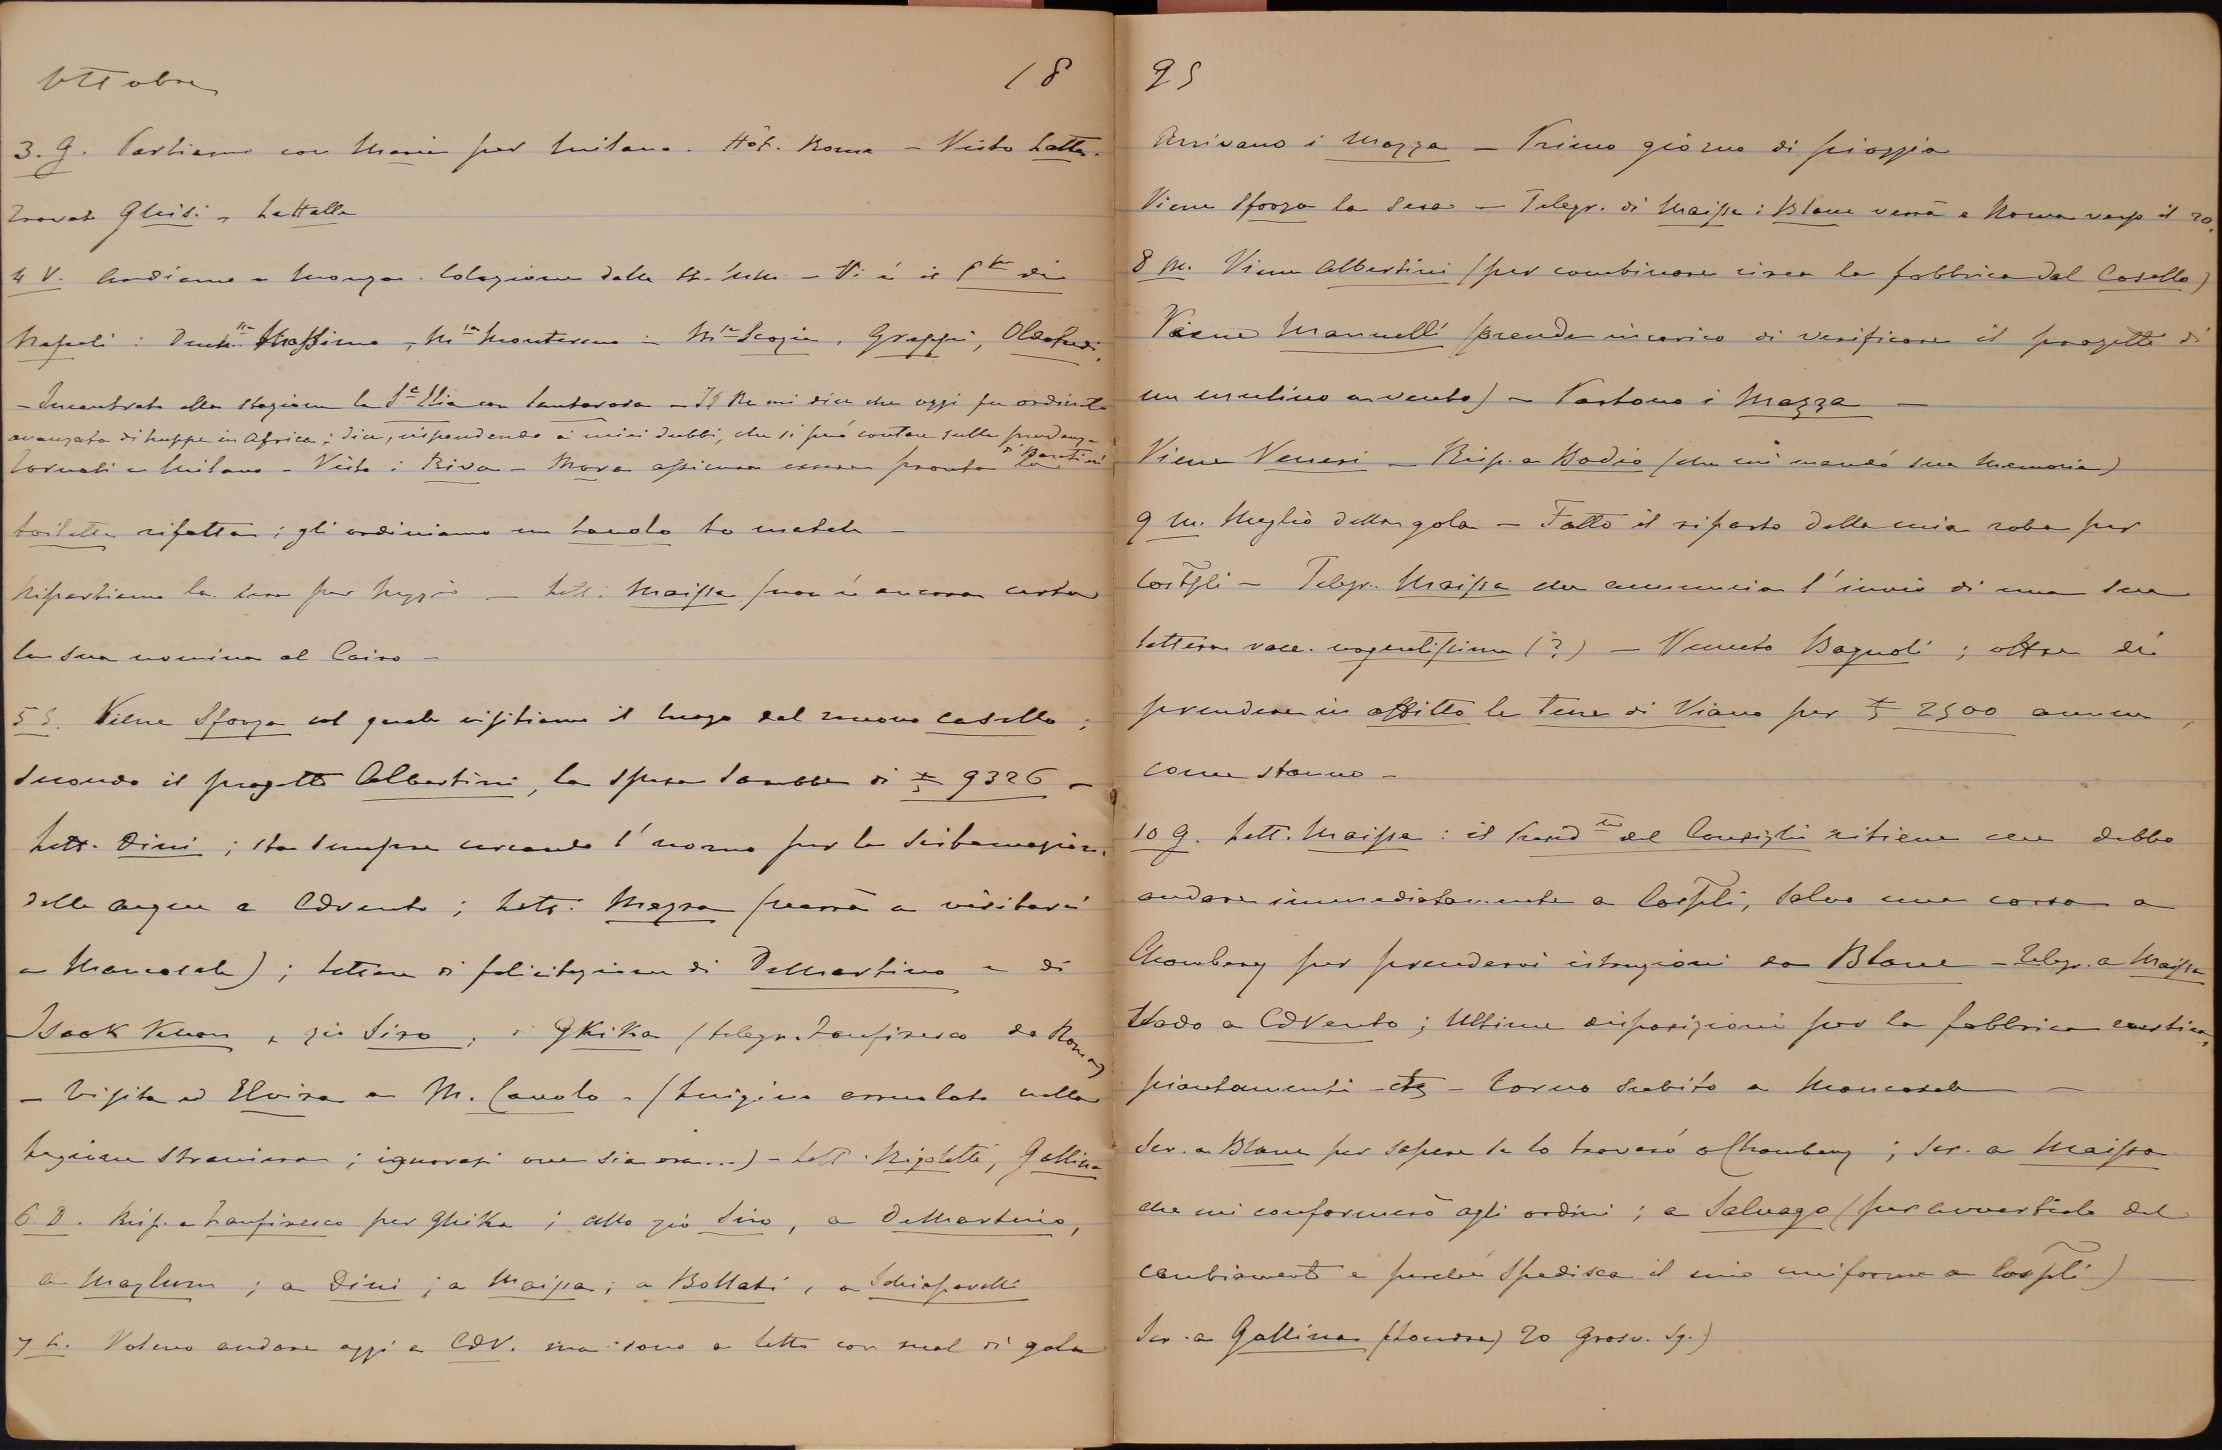 Ottobre 18
3. G. Partiamo con Maria per Milano. Hôt. Roma – Visto Latta.
Trovato Ghisi, Lattalla
4 V. Andiamo a Monza. Colazione dalle LL. MM. – Vi è il Pr. di
Napoli: Duch.ssa Massimo, M.sa Montereno M.sa Scozia, Greppi, Oldofredi,
– Incontrato alla stazione la S.a Elia con Santarosa – Il Re mi dice che oggi fu ordinata
avanzata di truppe in Africa; dice, rispondendo ai miei dubbi, che si può contare sulla prudenza
di Baratieri
Tornati a Milano – Visto i Riva – Mora assicura essere pronta la
toiletta rifatta; gli ordiniamo un tavolo to match –
Ripartiamo la sera per Reggio – Lett. Maissa (non è ancora certa
la sua nomina al Cairo –
5 S. Viene Sforza col quale visitiamo il luogo del nuovo casello;
secondo il progetto Albertini, la spesa sarebbe di £ 9326 –
Lett. Dini; sta sempre cercando l'uomo per la
delle acque a CdVento; Lett. Mazza (verrà a visitarci
a Mancasale); lettere di felicitazione di DeMartino e di
Isaak Khan, zio Siro, Ghika (telegr. Zanfiresco da Roma)
– Visita ad Elvira a M. Cavolo – (Luigino arruolato nella
legione straniera; ignorasi ove sia ora...) – Lett. Nigoletti, Gallina
6 D. Risp. a Zanfiresco per Ghika; allo zio Siro, a DeMartino,
a Mazlum; a Dini; a Maissa; a Bollati, a Schiaparelli
7 L. Volevo andare oggi a CdV. ma sono a letto con mal di gola
95
Arrivano i Mazza – Primo giorno di pioggia
Viene Sforza la sera – Telegr. di Maissa: Blanc verrà a Roma verso il 20.
8 M. Viene Albertini (per combinare circa la fabbrica del Casello)
Viene Mannelli (prende incarico di verificare il progetto di
un mulino a vento) – Partono i Mazza –
Viene Veneri – Risp. a Bodio (che mi mandò sua memoria)
9 M. Meglio della gola – Fatto il riparto della mia roba per
Costpli – Telegr. Maissa che annuncia l'invio di una sua
lettera racc. urgentissima (?) – Venuto Bagnoli; offre di
prendere in affitto le terre di Viano per £ 2500 annue,
come stanno –
10 G. Lett. Maissa: il Presid.te del Consiglio ritiene che debbo
andare immediatamente a Costpli, salvo una corsa a
Chambery per prendervi istruzioni da Blanc – Telegr. a Maissa
Vado a CdVento; ultime disposizioni per la fabbrica rustica,
piantamenti – etc – Torno subito a Mancasale –
Scr. a Blanc per sapere se lo troverò a Chambery; scr. a Maissa
che mi conformerò agli ordini; a Salvago (per avvertirlo del
cambiamento e perché spedisca il mio uniforme a Costpli) –
Scr. a Gallina (Londra) 20 Grosv. Sq.)